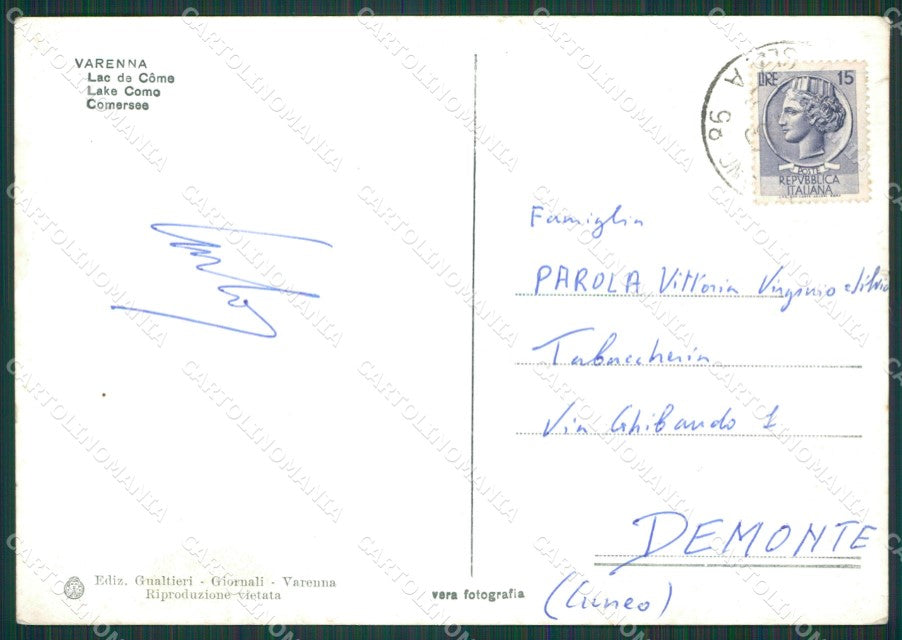 VARENNA
Lac de Côme
Lake Como
Comersee
LIRE 15
POSTE
REPVBBLICA
ITALIANA
Famiglia
PAROLA Vittoria Virginio e Silvia
Tabaccheria
Via Ghibaudo 1
DEMONTE
(Cuneo)
Ediz. Gualtieri - Giornali - Varenna
Riproduzione vietata
vera fotografia
CARTOLINOMANIA